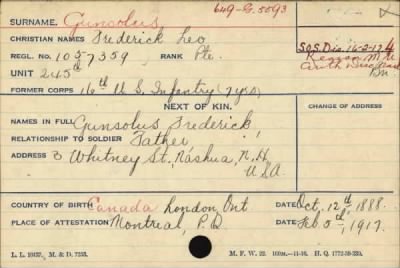 649-G.5593
SURNAME. Gunsolus
CHRISTIAN NAMES Frederick Leo
REGL. NO. 1057359 RANK Pte.
S.O.S. Dis. 16-2-17
Reason M.U.
UNIT 245th
Bn
FORMER CORPS 16th U S Infantry (7 yrs)
NEXT OF KIN.
CHANGE OF ADDRESS
NAMES IN FULL Gunsolus Frederick
RELATIONSHIP TO SOLDIER Father
ADDRESS 3 Whitney St., Nashua, N.H.
U.S.A
COUNTRY OF BIRTH Canada London Ont DATE Oct, 12th, 1888.
PLACE OF ATTESTATION Montreal, P.Q. DATE Feb 5th, 1917.
L. L. 10437. M. & D. 7253. M. F. W. 22. 100M.—11-16. H. Q. 1772-39-239.